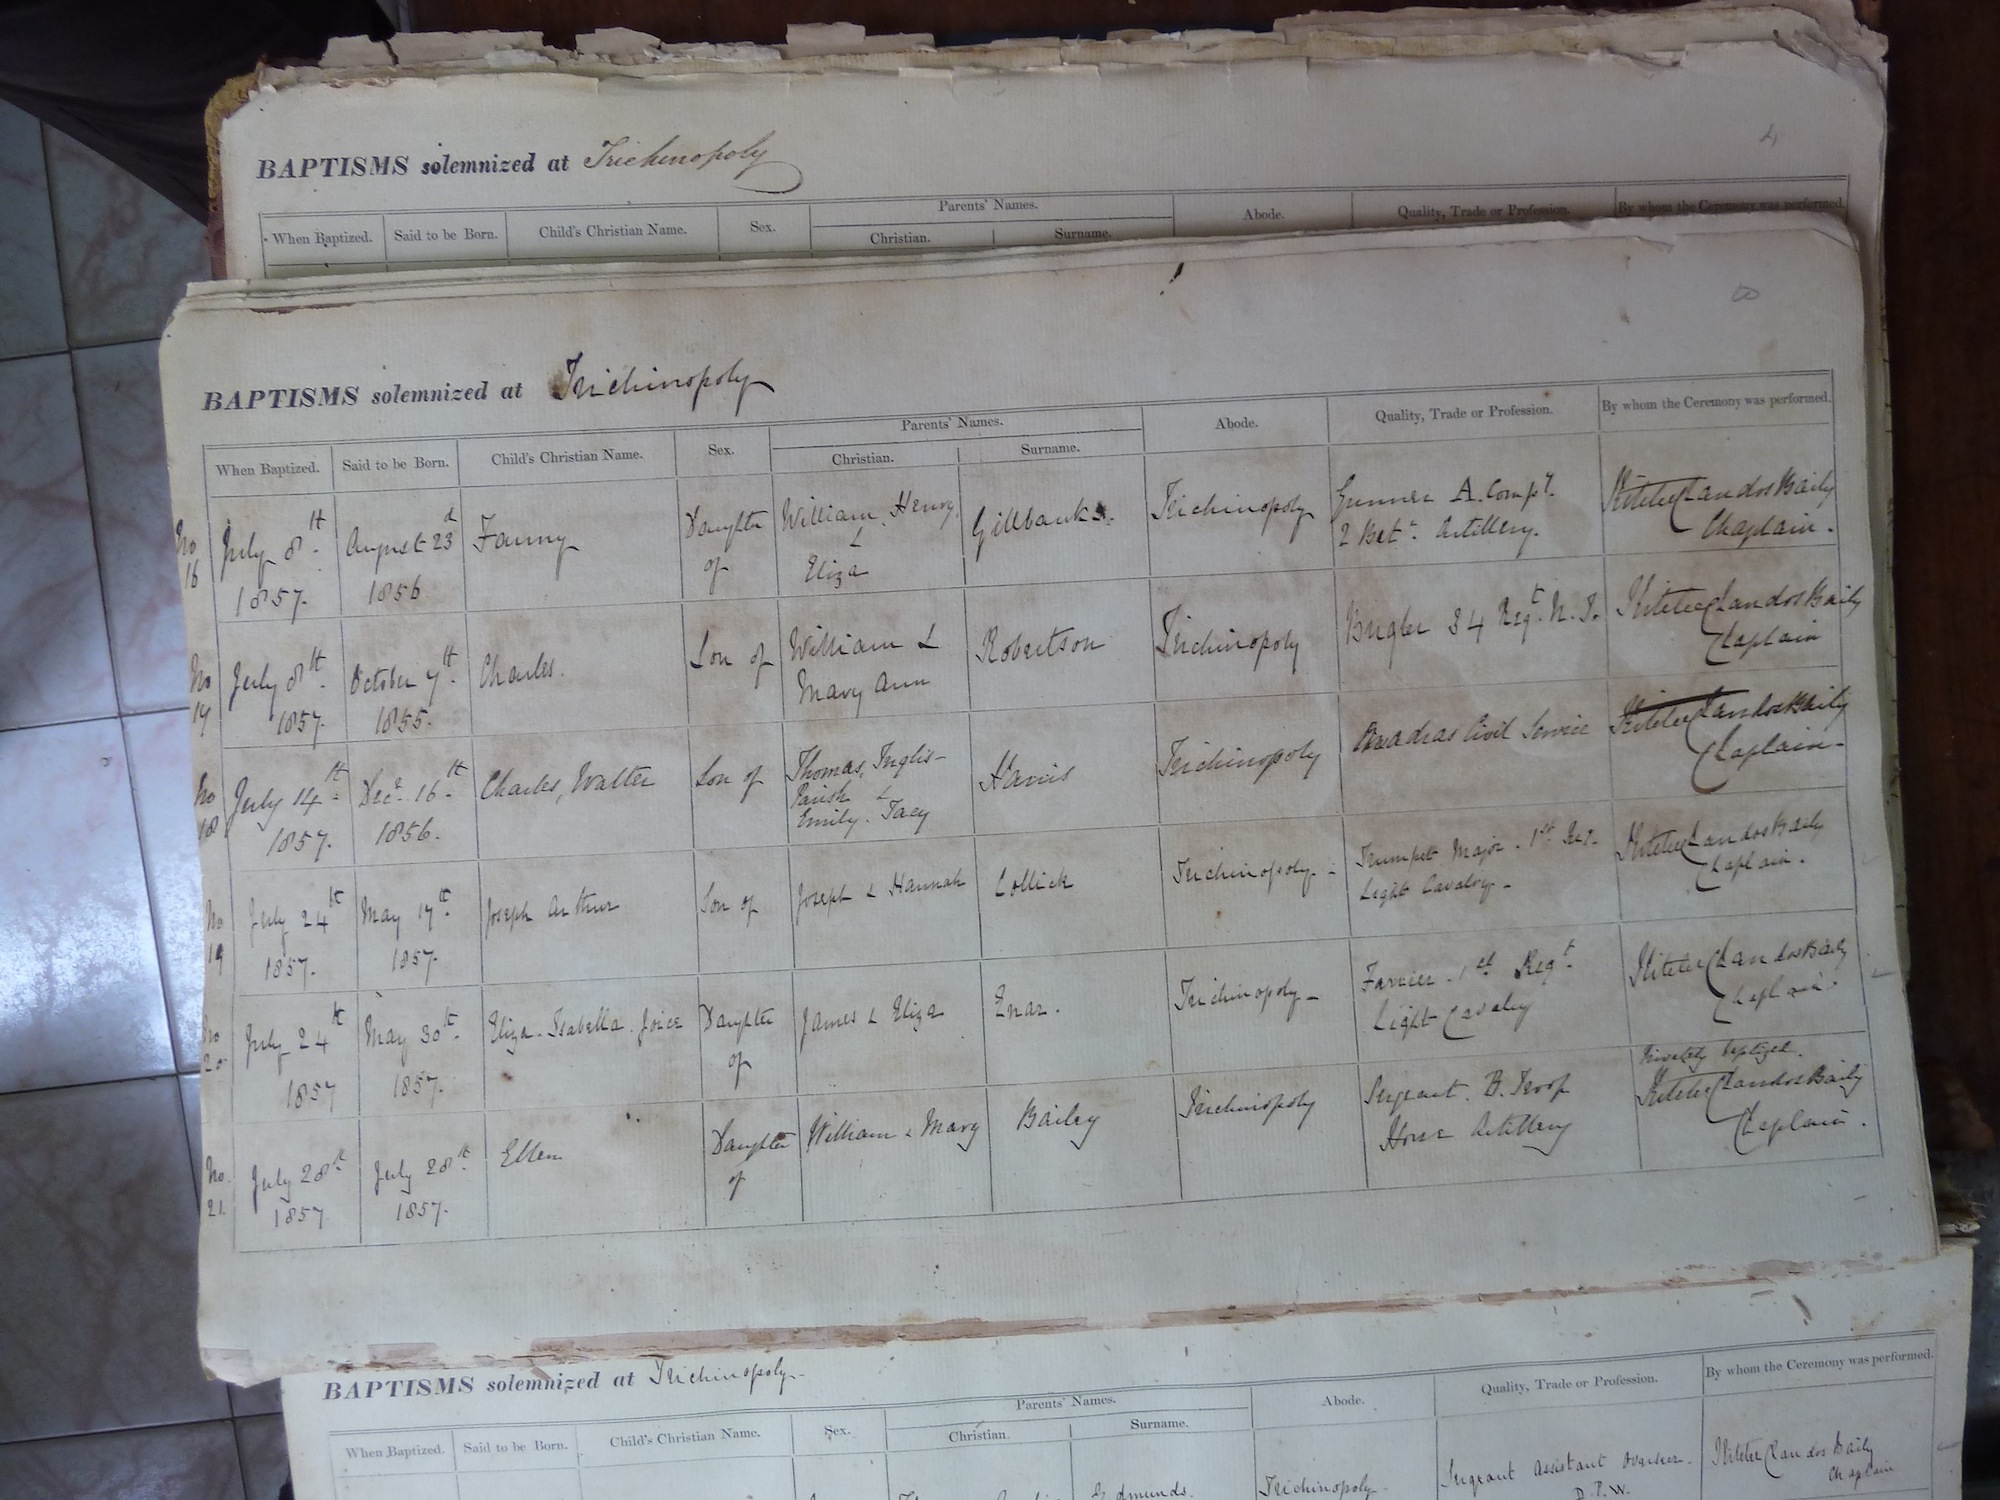 BAPTISMS solemnized at Trichinopoly
4
Parents' Names.
When Baptized. Said to be Born. Child's Christian Name. Sex. Christian. Surname. Abode. Quality, Trade or Profession. By whom the Ceremony was performed.
BAPTISMS solemnized at Trichinopoly
Parents' Names.
When Baptized. Said to be Born. Child's Christian Name. Sex. Christian. Surname. Abode. Quality, Trade or Profession. By whom the Ceremony was performed.
No 16 July 8th 1857. August 23d 1856 Fanny Daughter of William Henry & Eliza Gillbanks. Trichinopoly Gunner A. Compy. 2 Batn. Artillery. Chandos Baily Chaplain.
No 17 July 8th 1857. October 7th 1855. Charles. Son of William & Mary Ann Robertson Trichinopoly Bugler 34 Regt. N. I. Chandos Baily Chaplain
No 18 July 14th 1857. Decr. 16th 1856. Charles, Walter Son of Thomas, Inglis- Parish & Emily. Tacy Harris Trichinopoly Madras Civil Service Chandos Baily Chaplain-
No 19 July 24th 1857. May 17th 1857. Joseph Arthur Son of Joseph & Hannah Collick Trichinopoly- Trumpet Major. 1st Regt. Light Cavalry- Chandos Baily Chaplain.
No 20 July 24th 1857 May 30th 1857. Eliza. Isabella. Joice Daughter of James & Eliza Trichinopoly- Farrier. 1st Regt. Light Cavalry Chandos Baily Chaplain.
No. 21. July 28th 1857 July 28th 1857. Ellen Daughter of William & Mary Bailey Trichinopoly Sergeant. B. Troop Horse Artillery Privately baptized. Chandos Baily Chaplain.
BAPTISMS solemnized at Trichinopoly-
Parents' Names.
When Baptized. Said to be Born. Child's Christian Name. Sex. Christian. Surname. Abode. Quality, Trade or Profession. By whom the Ceremony was performed.
Edmunds. Trichinopoly. Sergeant Assistant Overseer. D. P. W. Chandos Baily Chaplain